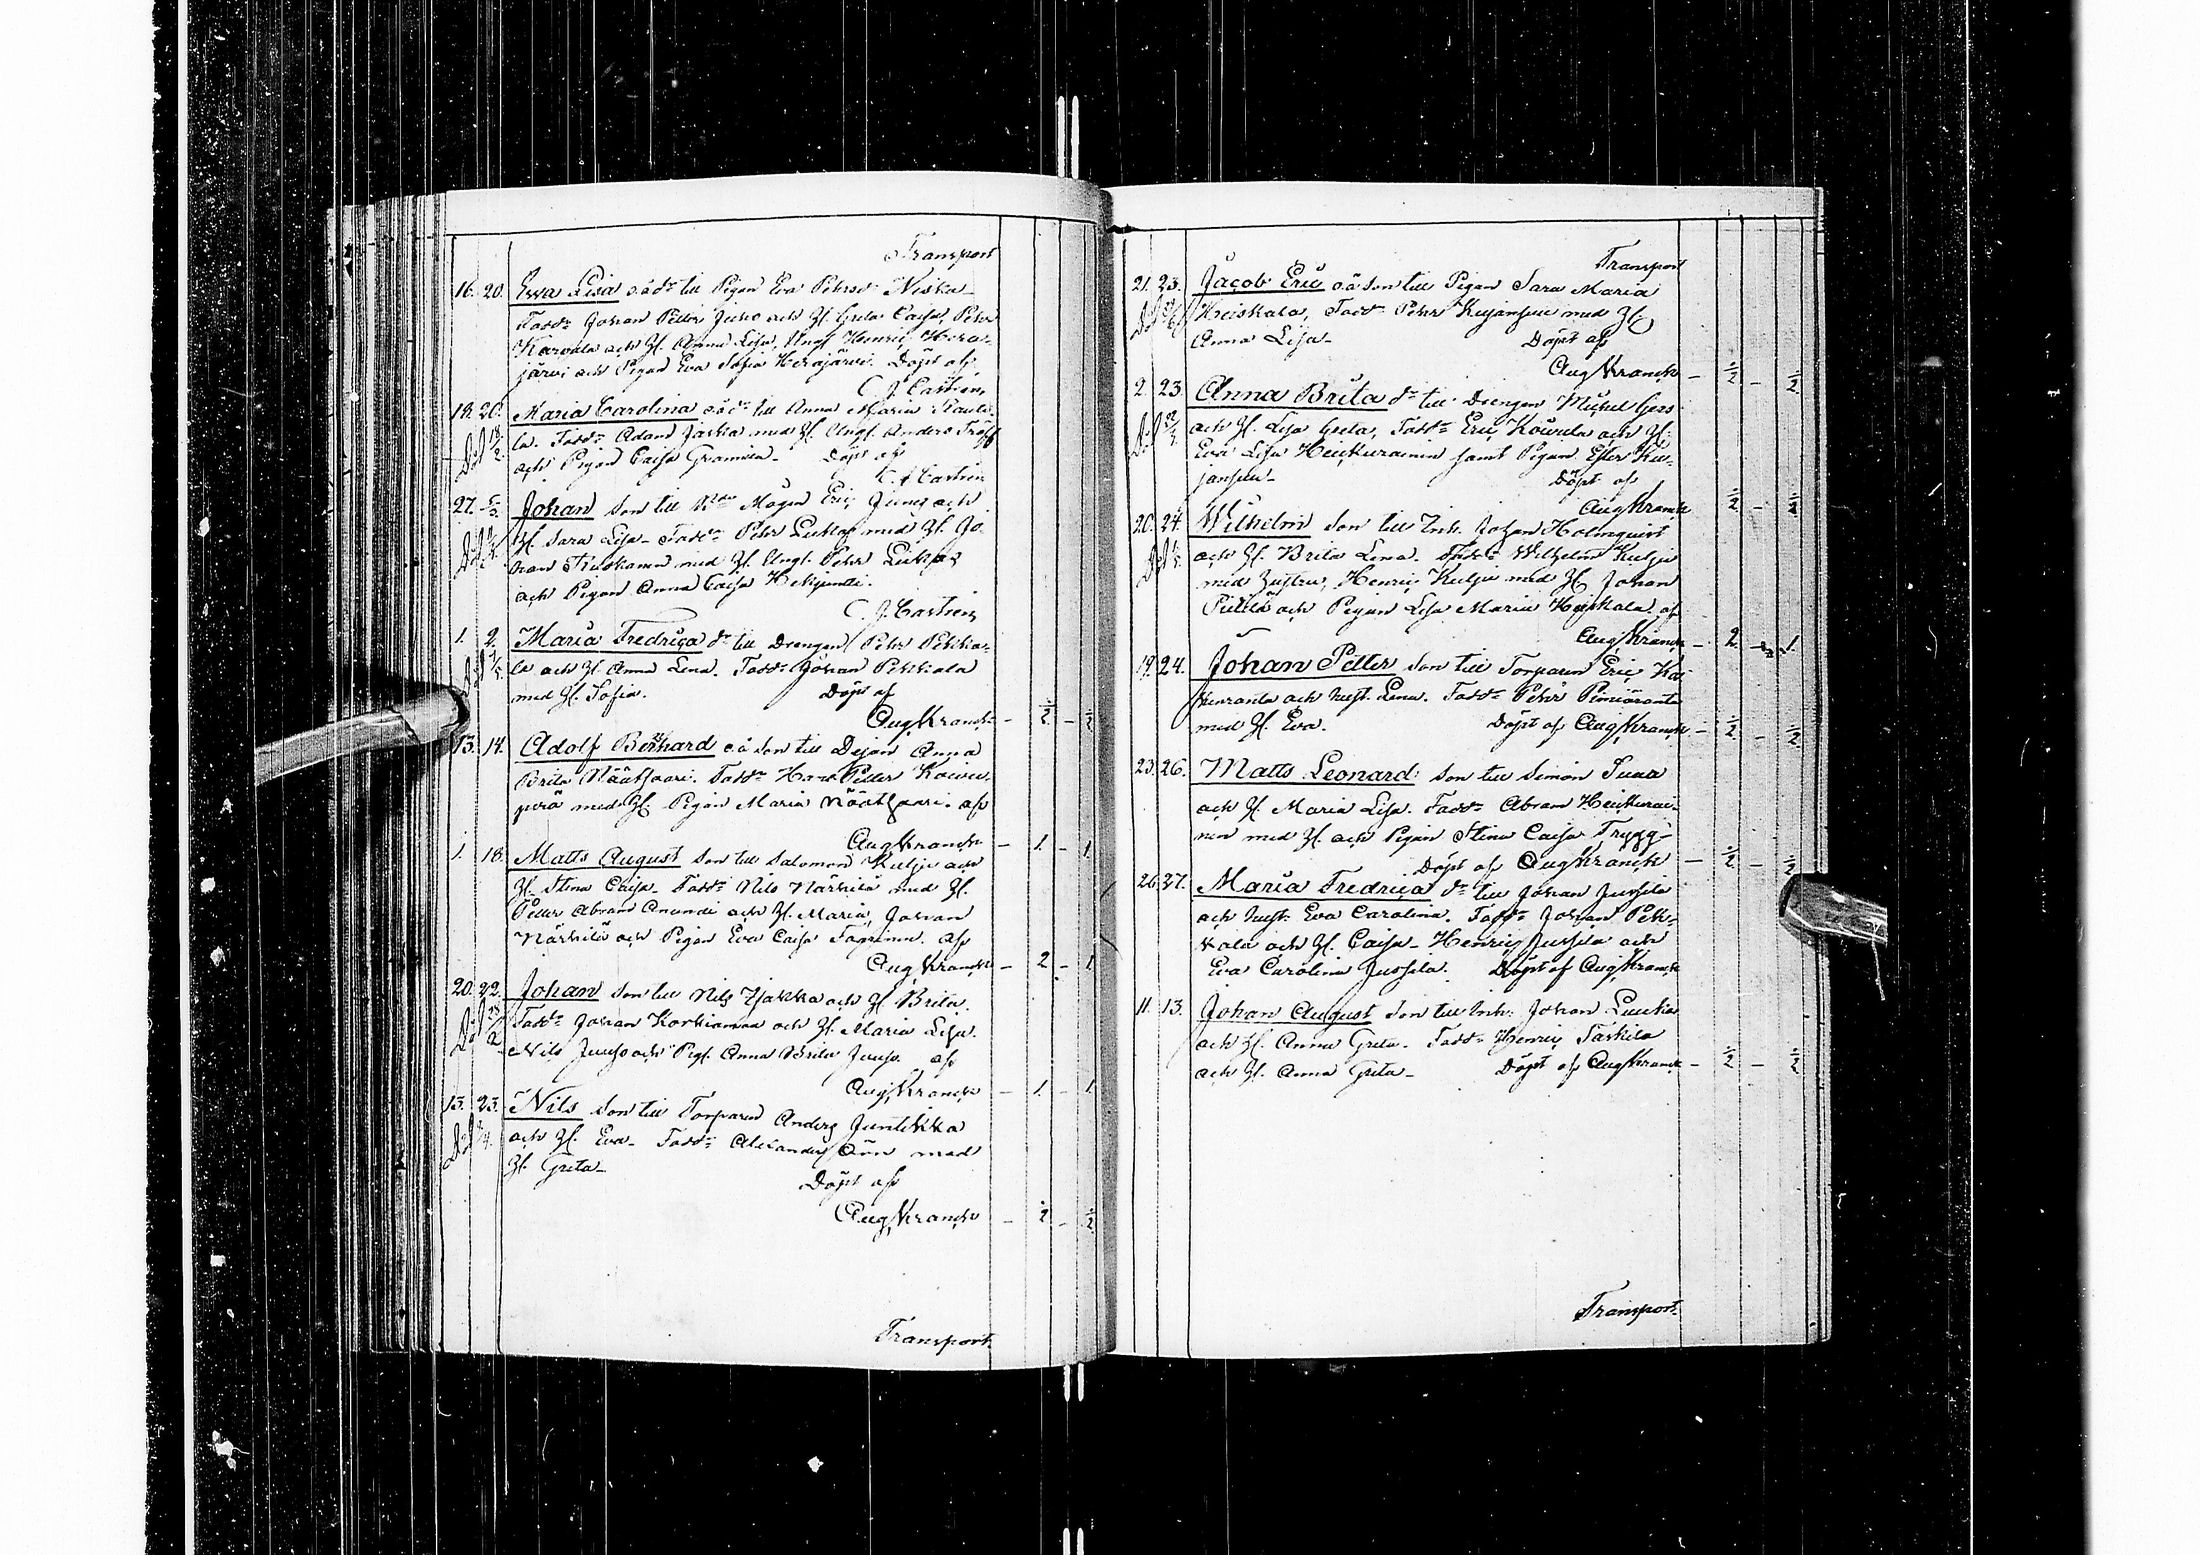 Transport
16. 20. Ewa Lisa o.ä dr till Pigan Eva Pehrsdr Niska
Faddr Johan Petter Juho och H. Greta Caisa, Pehr
Karvala och H. Anna Lisa, Ungk Henric Hera-
järvi och Pigan Eva Sofia Herajärvi. Döpt af
C. J. Castrén
18. 20. Maria Carolina o.ä dr till Anna Maria
la. Faddr Adam Jaska med H. Ungk. Anders Träff
och Pigan Caisa Döpt af
C. J. Castrén
27. Johan son till Mågen Eric Junes och
H. Sara Lisa Faddr Pehr med H. Jo-
han med H. Ungk. Pehr
och Pigan Anna Caisa
C. J. Castrén
1. 2. Maria Fredrica dr till Drengen Pehr Pekka-
la och H. Anna Lena. Faddr Johan Pekkala
med H. Sofia. Döpt af
Aug Kranck - ½ - ½
13. 14. Adolf Bernhard o.ä son till Dejan Anna
Brita Näätsaari. Faddr Petter Koivu-
perä med H. Pigan Maria Näätsaari. af
Aug Kranck - 1. - 1
1. 18. Matts August son till Salomon Kulju och
H. Stina Caisa. Faddr Nils Närhilä med H.
Petter Abram Anundi och H. Maria, Johan
Närhilä och Pigan Eva Caisa af
Aug Kranck - 2 - 1
20. 22. Johan son till Nils och H. Brita.
Faddr Johan Korkiamaa och H. Maria Lisa.
Nils Juuso och Pig. Anna Brita Juuso. af
Aug Kranck - 1. - 1
13. 23. Nils son till Torparen Anders Juntikka
och H. Eva. Faddr Alexander med
H. Greta
Döpt af
Aug Kranck - ½ - ½
Transport
Transport
21. 23. Jacob Eric o.ä son till Pigan Sara Maria
Heiskala, Faddr Pehr Kujansuu med H.
Anna Lisa Döpt af
Aug Kranck - ½ - ½
2. 23. Anna Brita dr till Drengen Mickel Gers
och H. Lisa Greta, Faddr Eric Koivula och H.
Eva Lisa Heickurainen samt Pigan Ester Ku-
jansuu Döpt af
Aug Kranck ½ - ½
20. 24. Wilhelm son till Inh. Johan Holmquist
och H. Brita Lena. Faddr Wilhelm Kulju
med Hustru, Henric Kulju med H. Johan
Pietilä och Pigan Lisa Maria Heiskala af
Aug Kranck - 2 - 1
19. 24. Johan Petter son till Torparen Eric
och hust. Lena. Faddr Pehr
med H. Eva. Döpt af Aug Kranck - ½ - ½
23. 26. Matts Leonard son till Simon
och H. Maria Lisa. Faddr Abram Heickurai-
nen med H. och Pigan Stina Caisa Trygg-
Döpt af Aug Kranck - ½ - ½
26. 27. Maria Fredrica dr till Johan Jussila
och hust. Eva Carolina. Faddr Johan Pek-
kala och H. Caisa Henric Jussila och
Eva Carolina Jussila. Döpt af Aug Kranck
11. 13. Johan August son till Inh. Johan
och H. Anna Greta. Faddr Henric Taskila
och H. Anna Greta Döpt af Aug Kranck - ½ - ½
Transport.